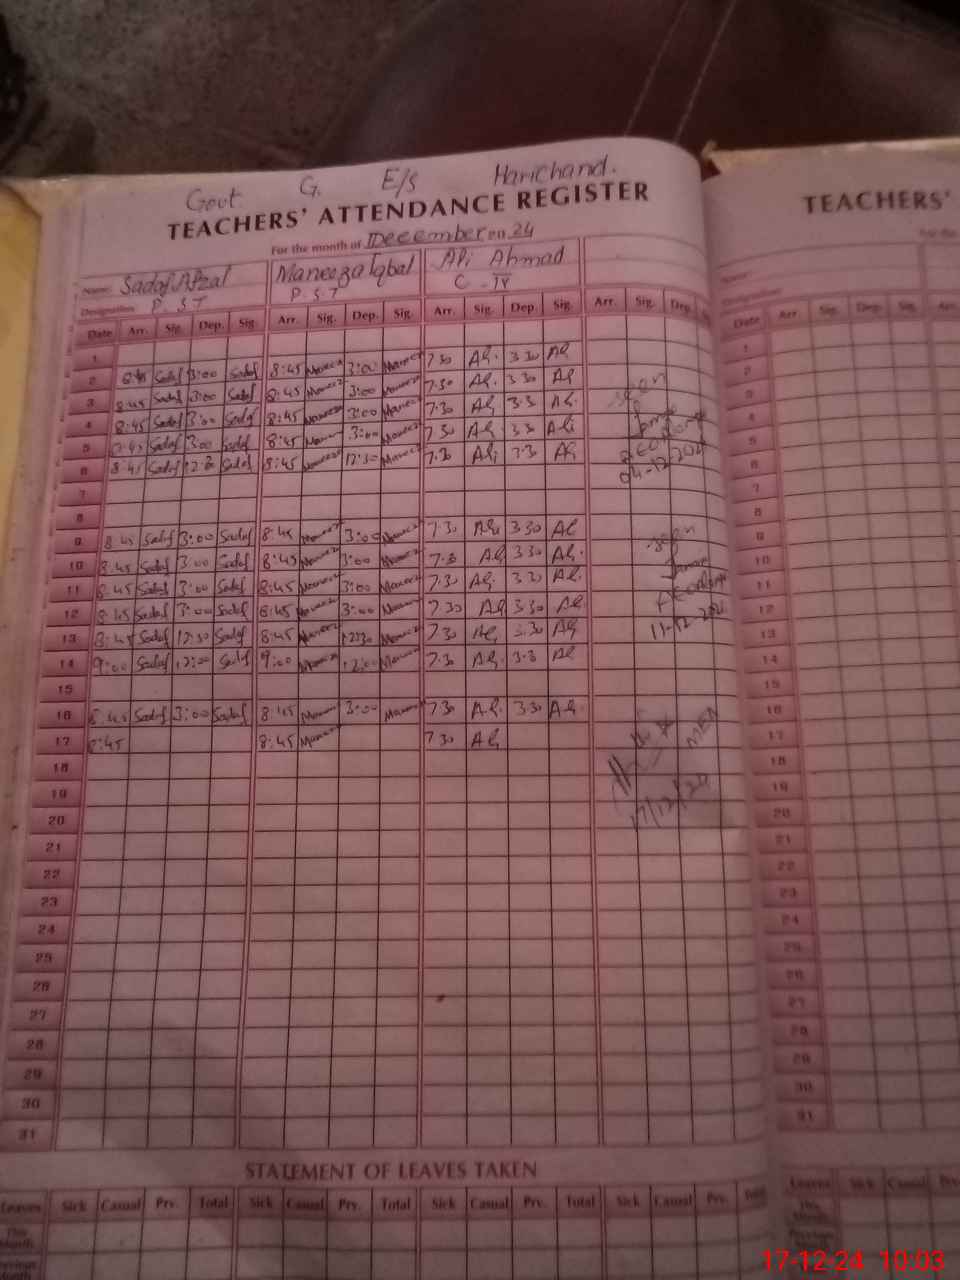 Govt. G. E/S Harichand.
TEACHERS' ATTENDANCE REGISTER
For the month of December 20 24
Name: Sadaf Afzal Maneeza Iqbal Ali Ahmad
Designation P.S.T P.S.T C-IV
Date Arr. Sig. Dep. Sig. Arr. Sig. Dep. Sig. Arr. Sig. Dep. Sig. Arr. Sig. Dep.
1
2 8:45 Sadaf 3:00 Sadaf 8:45 3:00 7.30 Ali 3.30 Ali
3 8:45 Sadaf 3:00 Sadaf 8:45 3:00 7.30 Ali 3.30 Ali
4 8:45 Sadaf 3:00 Sadaf 8:45 3:00 7.30 Ali 3.3 Ali
5 8:45 Sadaf 3:00 Sadaf 8:45 3:00 7.30 Ali 3.30 Ali
6 8:45 Sadaf 12:3 Sadaf 8:45 12:30 7.3 Ali 3.3 Ali
7
8
9 8:45 Sadaf 3:00 Sadaf 8:45 3:00 7.30 Ali 3.30 Ali
10 8:45 Sadaf 3:00 Sadaf 8:45 3:00 7.3 Ali 3.30 Ali
11 8:45 Sadaf 3:00 Sadaf 8:45 3:00 7.30 Ali 3.30 Ali
12 8:45 Sadaf 3:00 Sadaf 8:45 3:00 7.30 Ali 3.30 Ali
13 8:45 Sadaf 12:30 Sadaf 8:45 12:30 7.30 Ali 3.30 Ali
14 9:00 Sadaf 12:00 Sadaf 9:00 12:00 7.3 Ali 3.3 Ali
15
16 8:45 Sadaf 3:00 Sadaf 8:45 3:00 7.30 Ali 3.30 Ali
17 8:45 8:45 7.30 Ali
18
19
20
21
22
23
24
25
26
27
28
29
30
31
seen
04-12-2024
seen
11-12-2024
MEA
17/12/24
STATEMENT OF LEAVES TAKEN
Leaves Sick Casual Prv. Total Sick Casual Prv. Total Sick Casual Prv. Total Sick Casual Prv. Total
This Month
Previous Month
TEACHERS'
Name:
Designation
Date Arr. Sig. Dep. Sig.
1
2
3
4
5
6
7
8
9
10
11
12
13
14
15
16
17
18
19
20
21
22
23
24
25
26
27
28
29
30
31
Leaves Sick Casual Prv.
This Month
Previous
17-12-24 10:03